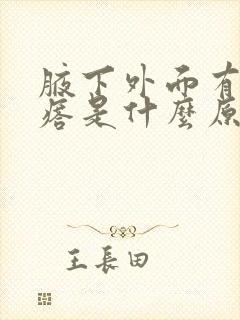 腋下外而有
痞是什麼原
王長田